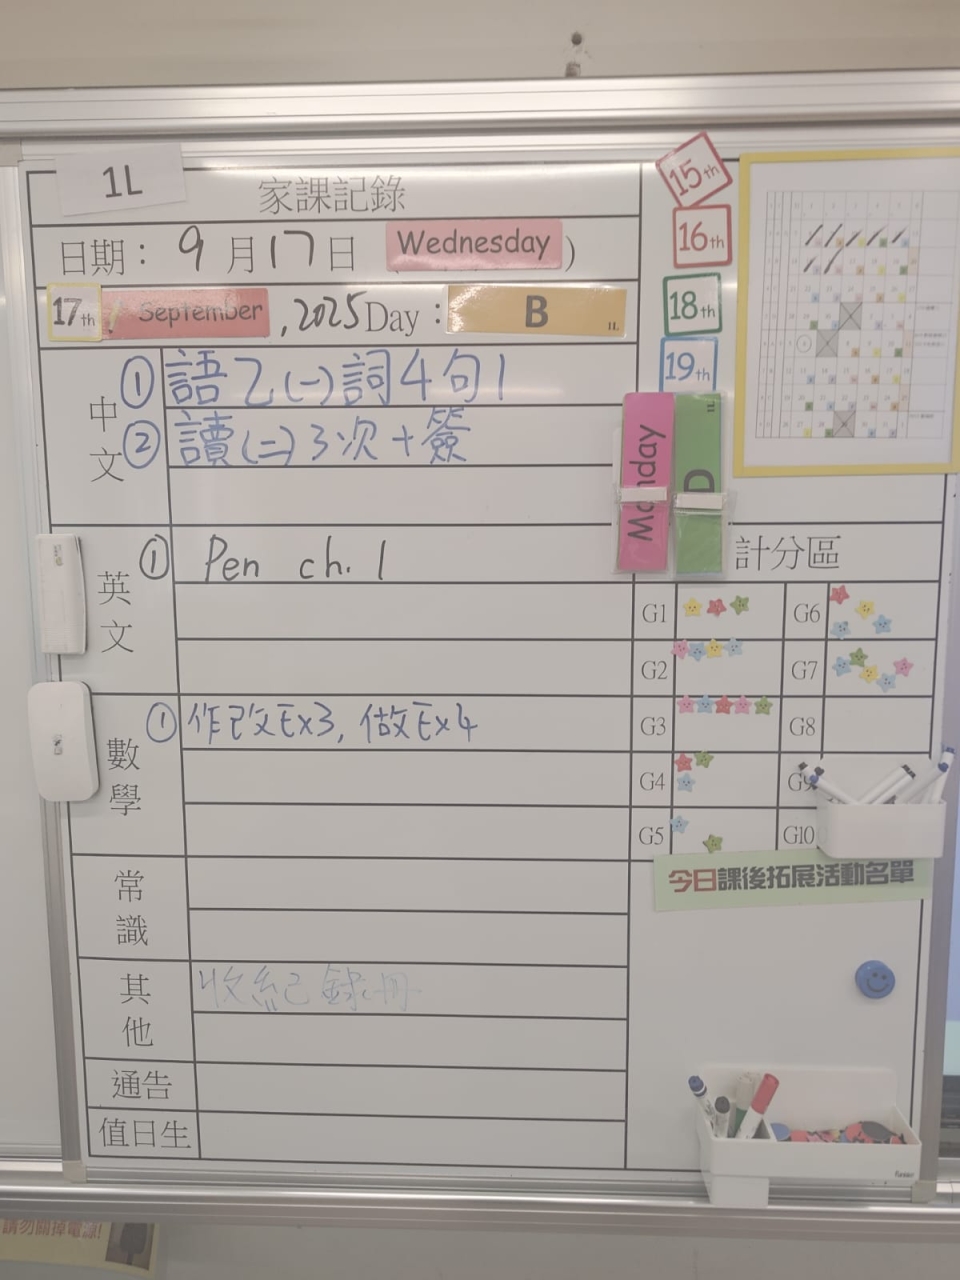 1L
家課記錄
日期： 9 月 17 日 ( Wednesday )
17th September , 2025 Day : B 1L
中文
① 語乙(一)詞4句1
② 讀(二)3次+簽
英文
① Pen ch. 1
數學
① 作改Ex3, 做Ex4
常識
其他
收紀錄冊
通告
值日生
15th
16th
18th
19th
Monday
D
計分區
G1 G6
G2 G7
G3 G8
G4 G9
G5 G10
今日課後拓展活動名單
faser
請勿關掉電源!